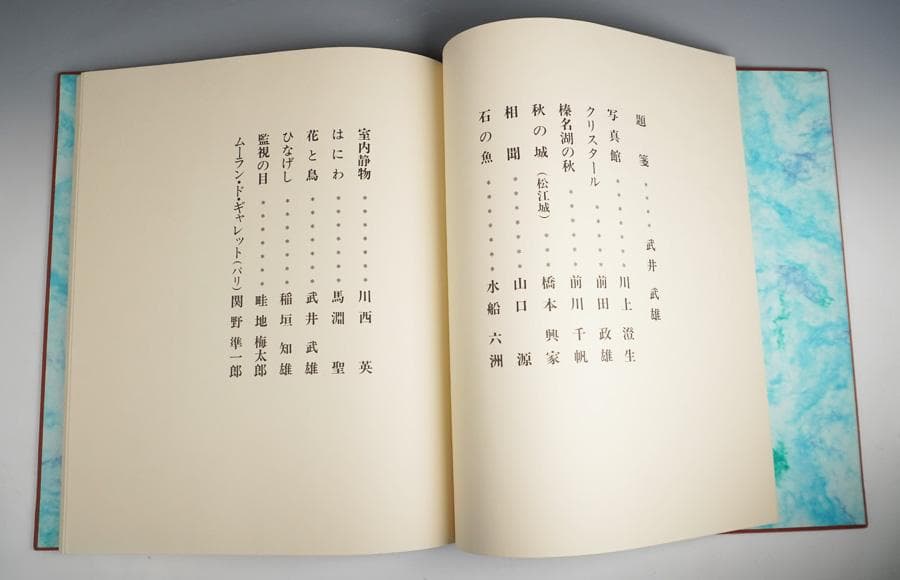 題箋****武井武雄
写真館******川上澄生
クリスタール****前田政雄
榛名湖の秋*****前川千帆
秋の城（松江城）***橋本興家
相聞*******山口源
石の魚*******水船六洲
室内静物******川西英
はにわ*******馬淵聖
花と鳥*******武井武雄
ひなげし******稲垣知雄
監視の目******畦地梅太郎
ムーラン・ド・ギャレット（パリ）関野準一郎